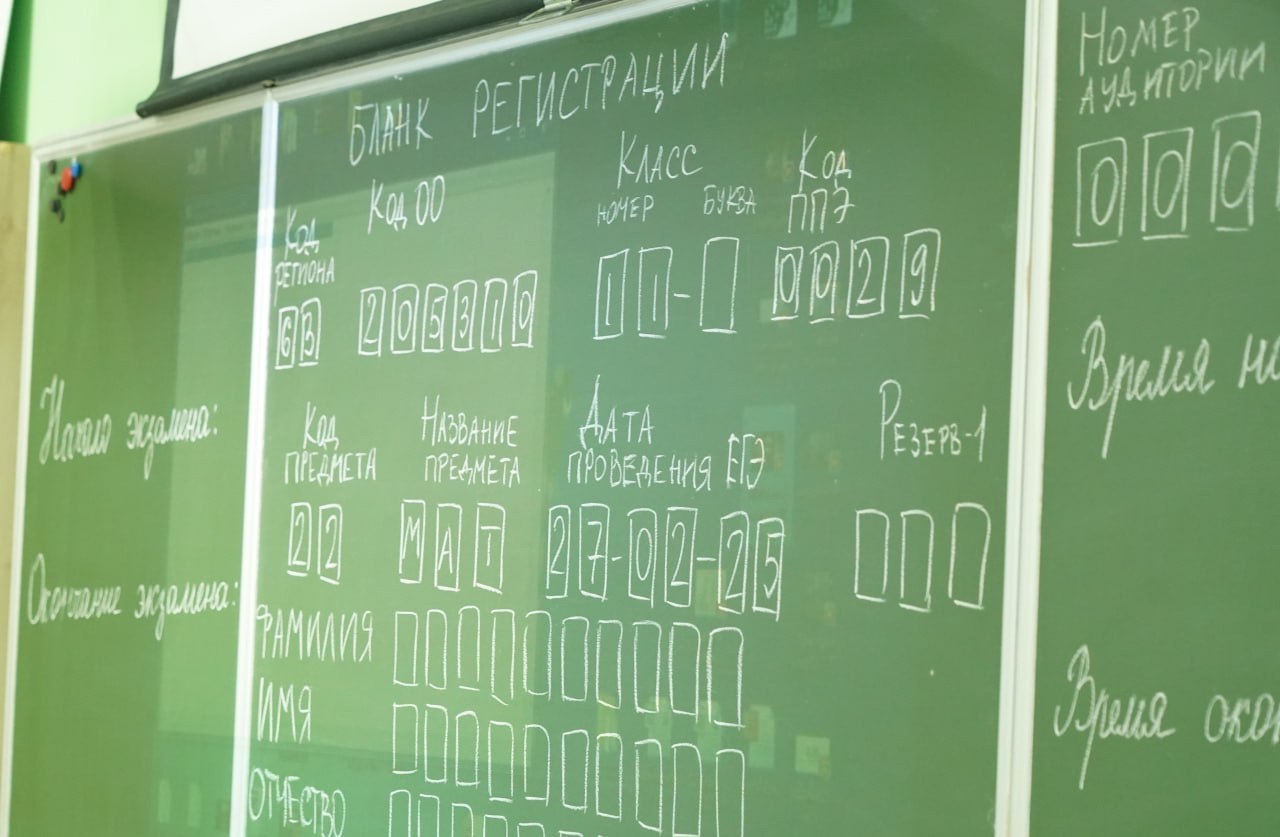 БЛАНК РЕГИСТРАЦИИ
КОД РЕГИОНА
КОД ОО
КЛАСС
НОМЕР БУКВА
КОД ППЭ
63
205310
11-
0029
КОД ПРЕДМЕТА
НАЗВАНИЕ ПРЕДМЕТА
ДАТА ПРОВЕДЕНИЯ ЕГЭ
РЕЗЕРВ-1
22
МАТ
27-02-25
ФАМИЛИЯ
ИМЯ
ОТЧЕСТВО
Начало экзамена:
Окончание экзамена:
НОМЕР
АУДИТОРИИ
000
Время
Время